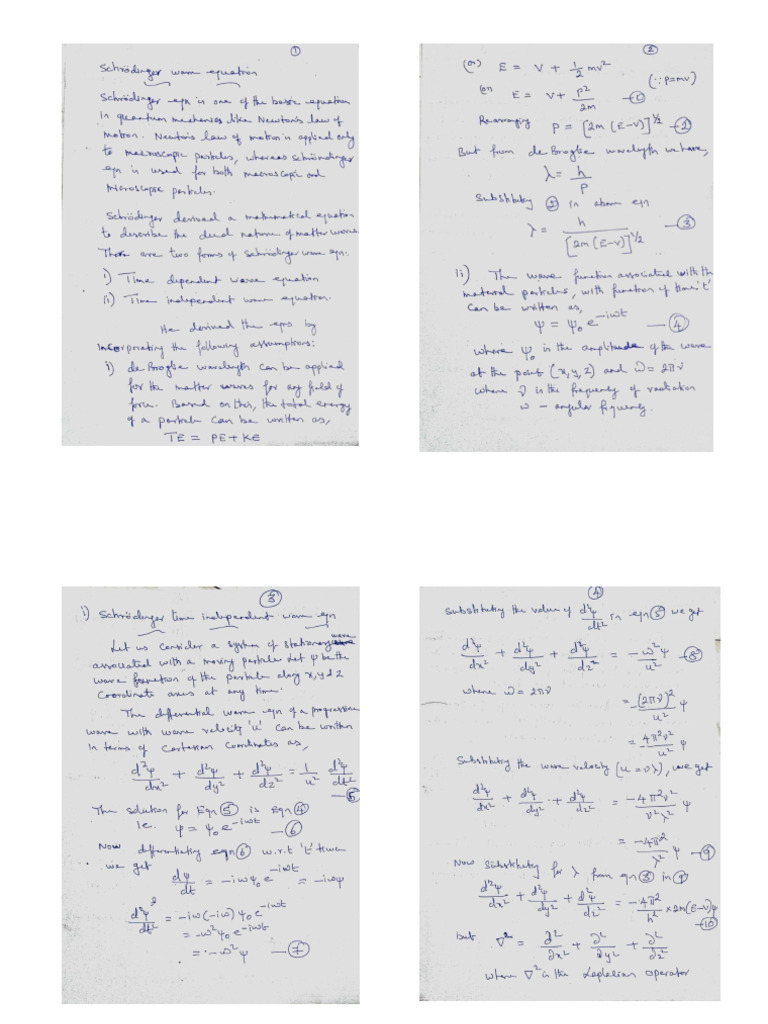 ①
Schrödinger wave equation
Schrödinger eqn is one of the basic equation
in quantum mechanics like Newton's law of
motion. Newton's law of motion is applied only
to macroscopic particles, whereas Schröndinger
eqn is used for both macroscopic and
microscopic particles.
Schrödinger derived a mathematical equation
to describe the dual nature of matter waves
There are two forms of Schrödinger wave eqn:
i) Time dependent wave equation
ii) Time independent wave equation.
He derived the eqns by
incorporating the following assumptions:
i) de Broglie wavelength can be applied
for the matter waves for any field of
force. Based on this, the total energy
of a particle can be written as,
TE = PE + KE
②
(or) E = V + 1/2 mv²
(or) E = V + p²/2m —① (∵ p = mv)
Rearranging P = [2m (E-V)]^1/2 —②
But from de Broglie wavelength we have,
λ = h/P
Substituting ② in above eqn
λ = h/[2m(E-V)]^1/2 —③
ii) The wave function associated with the
material particles, with function of time 't'
can be written as,
ψ = ψ₀ e^-iωt —④
where ψ₀ is the amplitude of the wave
at the point (x, y, z) and ω = 2πν
where ν is the frequency of radiation
ω – angular frequency.
③
i) Schrödinger time independent wave eqn
Let us consider a system of stationary wave
associated with a moving particle Let ψ be the
wave function of the particle along x, y & z
coordinate axes at any time.
The differential wave eqn of a progressive
wave with wave velocity 'u' can be written
in terms of Cartesian coordinates as,
d²ψ/dx² + d²ψ/dy² + d²ψ/dz² = 1/u² d²ψ/dt² —⑤
The solution for Eqn ⑤ is Eqn ④
ie. ψ = ψ₀ e^-iωt —⑥
Now differentiating eqn ⑥ w.r.t 't' twice
we get
dψ/dt = -iω ψ₀ e^-iωt = -iωψ
d²ψ/dt² = -iω(-iω) ψ₀ e^-iωt
= -ω² ψ₀ e^-iωt
= -ω² ψ —⑦
④
Substituting the value of d²ψ/dt² in eqn ⑤ we get
d²ψ/dx² + d²ψ/dy² + d²ψ/dz² = -ω²ψ/u² —⑧
where ω = 2πν
= -(2πν)²/u² ψ
= -4π²ν²/u² ψ
Substituting the wave velocity (u = νλ), we get
d²ψ/dx² + d²ψ/dy² + d²ψ/dz² = -4π²ν²/ν²λ² ψ
= -4π²/λ² ψ —⑨
Now substituting for λ from eqn ③ in ⑨
d²ψ/dx² + d²ψ/dy² + d²ψ/dz² = -4π²/h² × 2m(E-V)ψ —⑩
but ∇² = ∂²/∂x² + ∂²/∂y² + ∂²/∂z²
where ∇² is the Laplacian operator